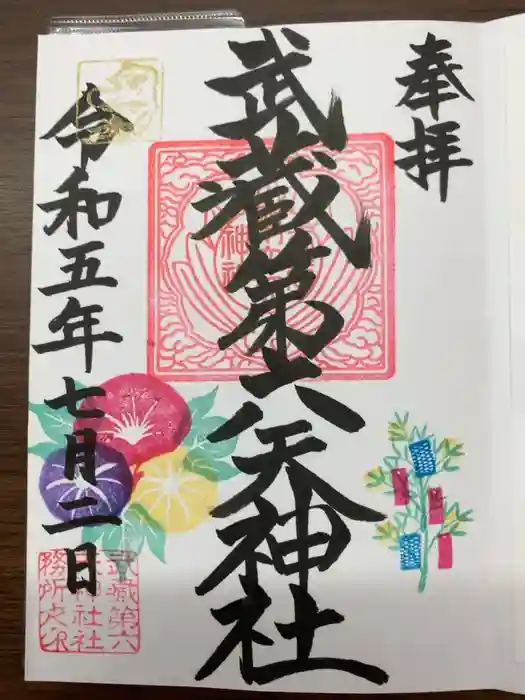 奉拝
武蔵第六天神社
令和五年七月二日
武蔵第六
天神社社
務所之印